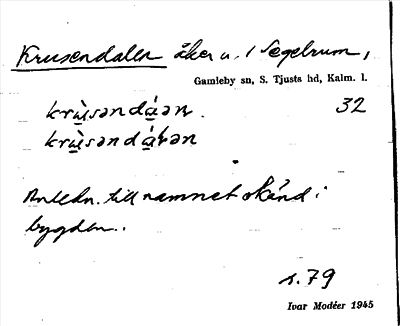 Krusendalen åker u. / Segelrum,
Gamleby sn, S. Tjusts hd, Kalm. l.
krùsəndá̤ən. 32
krùsəndá̤rən
Anledn. till namnet okänd i
bygden.
s. 79
Ivar Modéer 1945